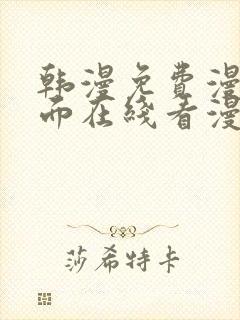 韩漫免费漫
而在线看漫
莎希特卡